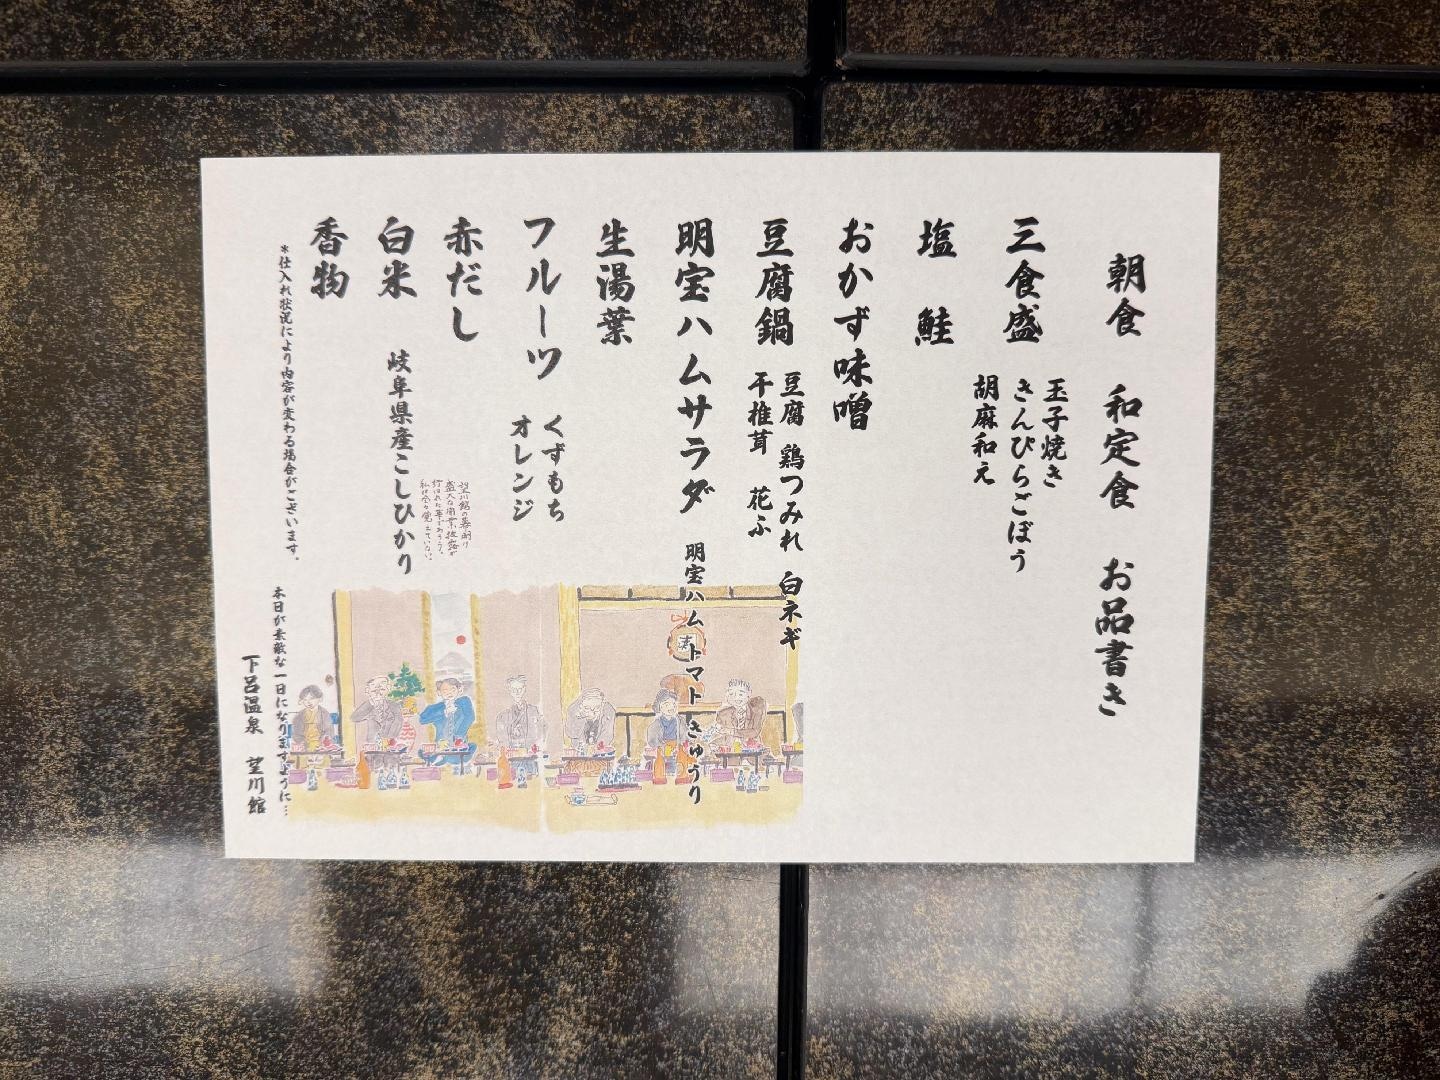 朝食 和定食 お品書き
三食盛
玉子焼き
きんぴらごぼう
胡麻和え
塩 鮭
おかず味噌
豆腐鍋
豆腐 鶏つみれ 白ネギ
干椎茸 花ふ
明宝ハムサラダ 明宝ハム トマト きゅうり
生湯葉
フルーツ
くずもち
オレンジ
赤だし
白米 岐阜県産こしひかり
香物
望川館の幕開け
盛大な開業披露が
行われた事であろう。
私は全々覚えていない。
寿
*仕入れ状況により内容が変わる場合がございます。
本日が素敵な一日になりますように…
下呂温泉 望川館